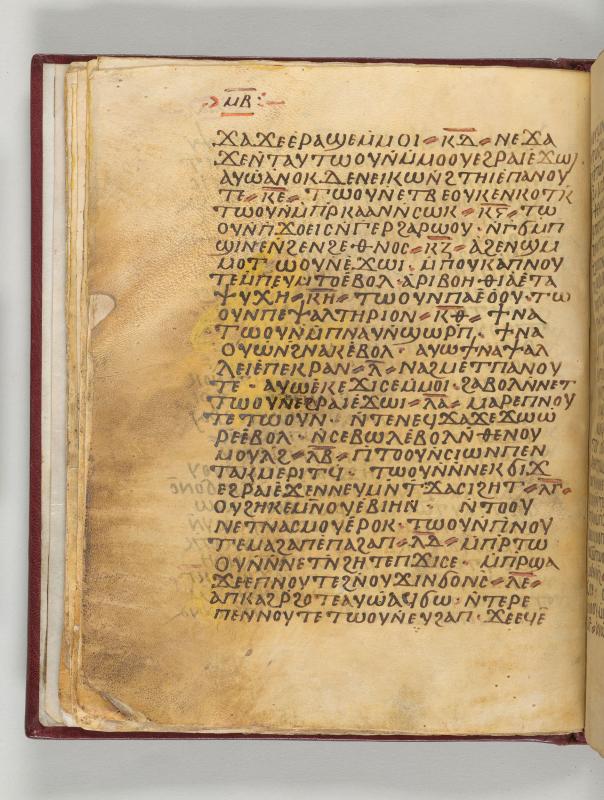 ⲙⲃ
ϫⲁϫⲉⲉⲣⲁϣⲉⲙⲙⲟⲓ ⲕⲇ ⲛⲉϫⲁ
ϫⲉⲛⲧⲁⲩⲧⲱⲟⲩⲛⲙⲙⲟⲟⲩⲉϩⲣⲁⲓⲉϫⲱⲓ
ⲁⲩⲱⲁⲛⲟⲕ ⲇⲉⲛⲉⲓⲕⲱⲛϩⲧⲏⲓⲉⲡⲛⲟⲩ
ⲧⲉ ⲕⲉ ⲧⲱⲟⲩⲛⲉⲧⲃⲉⲟⲩⲕⲉⲛⲕⲟⲧⲕ
ⲧⲱⲟⲩⲛⲙⲡⲣⲕⲁⲁⲛⲛⲥⲱⲕ ⲕⲋ ⲧⲱ
ⲟⲩⲛⲡϫⲟⲉⲓⲥⲛⲅⲉⲣϩⲁⲣⲱⲟⲩ ⲛⲅϭⲙⲡ
ϣⲓⲛⲉⲛϩⲉⲛϩⲉⲑⲛⲟⲥ ⲕⲍ ⲁϩⲉⲛϣⲙ
ⲙⲟⲧⲱⲟⲩⲛⲉϫⲱⲓ ⲙⲡⲟⲩⲕⲁⲡⲛⲟⲩ
ⲧⲉⲙⲡⲉⲩⲙⲧⲟⲉⲃⲟⲗ ⲁⲣⲓⲃⲟⲏⲑⲓⲁⲉⲧⲁ
ⲯⲩⲭⲏ ⲕⲏ ⲧⲱⲟⲩⲛⲡⲁⲉⲟⲟⲩ ⲧⲱ
ⲟⲩⲛⲡⲉⲯⲁⲗⲧⲏⲣⲓⲟⲛ ⲕⲑ ϯⲛⲁ
ⲧⲱⲟⲩⲛⲙⲡⲛⲁⲩⲛϣⲱⲣⲡ ϯⲛⲁ
ⲟⲩⲱⲛϩⲛⲁⲕⲉⲃⲟⲗ ⲁⲩⲱϯⲛⲁⲯⲁⲗ
ⲗⲉⲓⲉⲡⲉⲕⲣⲁⲛ ⲗ ⲛⲁϩⲙⲉⲧⲡⲁⲛⲟⲩ
ⲧⲉ ⲁⲩⲱⲉⲕⲉϫⲓⲥⲉⲙⲙⲟⲓ ϩⲁⲃⲟⲗⲛⲛⲉⲧ
ⲧⲱⲟⲩⲛⲉϩⲣⲁⲓⲉϫⲱⲓ ⲗⲁ ⲙⲁⲣⲉⲡⲛⲟⲩ
ⲧⲉⲧⲱⲟⲩⲛ ⲛⲧⲉⲛⲉϥϫⲁϫⲉϫⲱⲱ
ⲣⲉⲉⲃⲟⲗ ⲛⲥⲉⲃⲱⲗⲉⲃⲟⲗⲛⲑⲉⲛⲟⲩ
ⲙⲟⲩⲗϩ ⲗⲃ ⲡⲧⲟⲟⲩⲛⲥⲓⲱⲛⲡⲉⲛ
ⲧⲁⲕⲙⲉⲣⲓⲧϥ ⲧⲱⲟⲩⲛⲛⲛⲉⲕϭⲓϫ
ⲉϩⲣⲁⲓⲉϫⲉⲛⲛⲉⲩⲙⲛⲧϫⲁⲥⲓϩⲏⲧ ⲗⲅ
ⲟⲩϩⲏⲕⲉⲙⲛⲟⲩⲉⲃⲓⲏⲛ ⲛⲧⲟⲟⲩ
ⲛⲉⲧⲛⲁⲥⲙⲟⲩⲉⲣⲟⲕ ⲧⲱⲟⲩⲛⲡⲛⲟⲩ
ⲧⲉⲙⲁϩⲁⲡⲉⲡⲁϩⲁⲡ ⲗⲇ ⲙⲡⲣⲧⲱ
ⲟⲩⲛⲛⲛⲉⲧⲛϩⲏⲧⲉⲡϫⲓⲥⲉ ⲙⲡⲣϣⲁ
ϫⲉⲉⲡⲛⲟⲩⲧⲉϩⲛⲟⲩϫⲓⲛϭⲟⲛⲥ ⲗⲉ
ⲁⲡⲕⲁϩⲣϩⲟⲧⲉⲁⲩⲱⲁϥϭⲱ ⲛⲧⲉⲣⲉ
ⲡⲉⲛⲛⲟⲩⲧⲉⲧⲱⲟⲩⲛⲉⲩϩⲁⲡ ϫⲉⲉϥⲉ